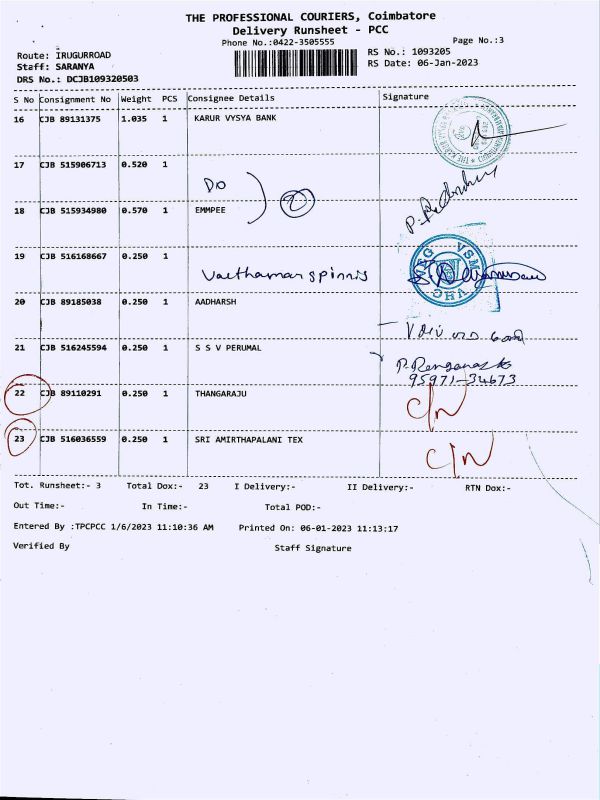 THE PROFESSIONAL COURIERS, Coimbatore
Delivery Runsheet - PCC
Phone No.:0422-3505555
Page No.:3
Route: IRUGURROAD
RS No.: 1093205
Staff: SARANYA
RS Date: 06-Jan-2023
DRS No.: DCJB109320503
S No Consignment No Weight PCS Consignee Details Signature
16 CJB 89131375 1.035 1 KARUR VYSYA BANK
17 CJB 515906713 0.520 1
DO
18 CJB 515934980 0.570 1 EMMPEE
2
19 CJB 516168667 0.250 1
20 CJB 89185038 0.250 1 AADHARSH
21 CJB 516245594 0.250 1 S S V PERUMAL
95971-34673
22 CJB 89110291 0.250 1 THANGARAJU
C/N
23 CJB 516036559 0.250 1 SRI AMIRTHAPALANI TEX
C/N
Tot. Runsheet:- 3 Total Dox:- 23 I Delivery:- II Delivery:- RTN Dox:-
Out Time:- In Time:- Total POD:-
Entered By :TPCPCC 1/6/2023 11:10:36 AM Printed On: 06-01-2023 11:13:17
Verified By Staff Signature